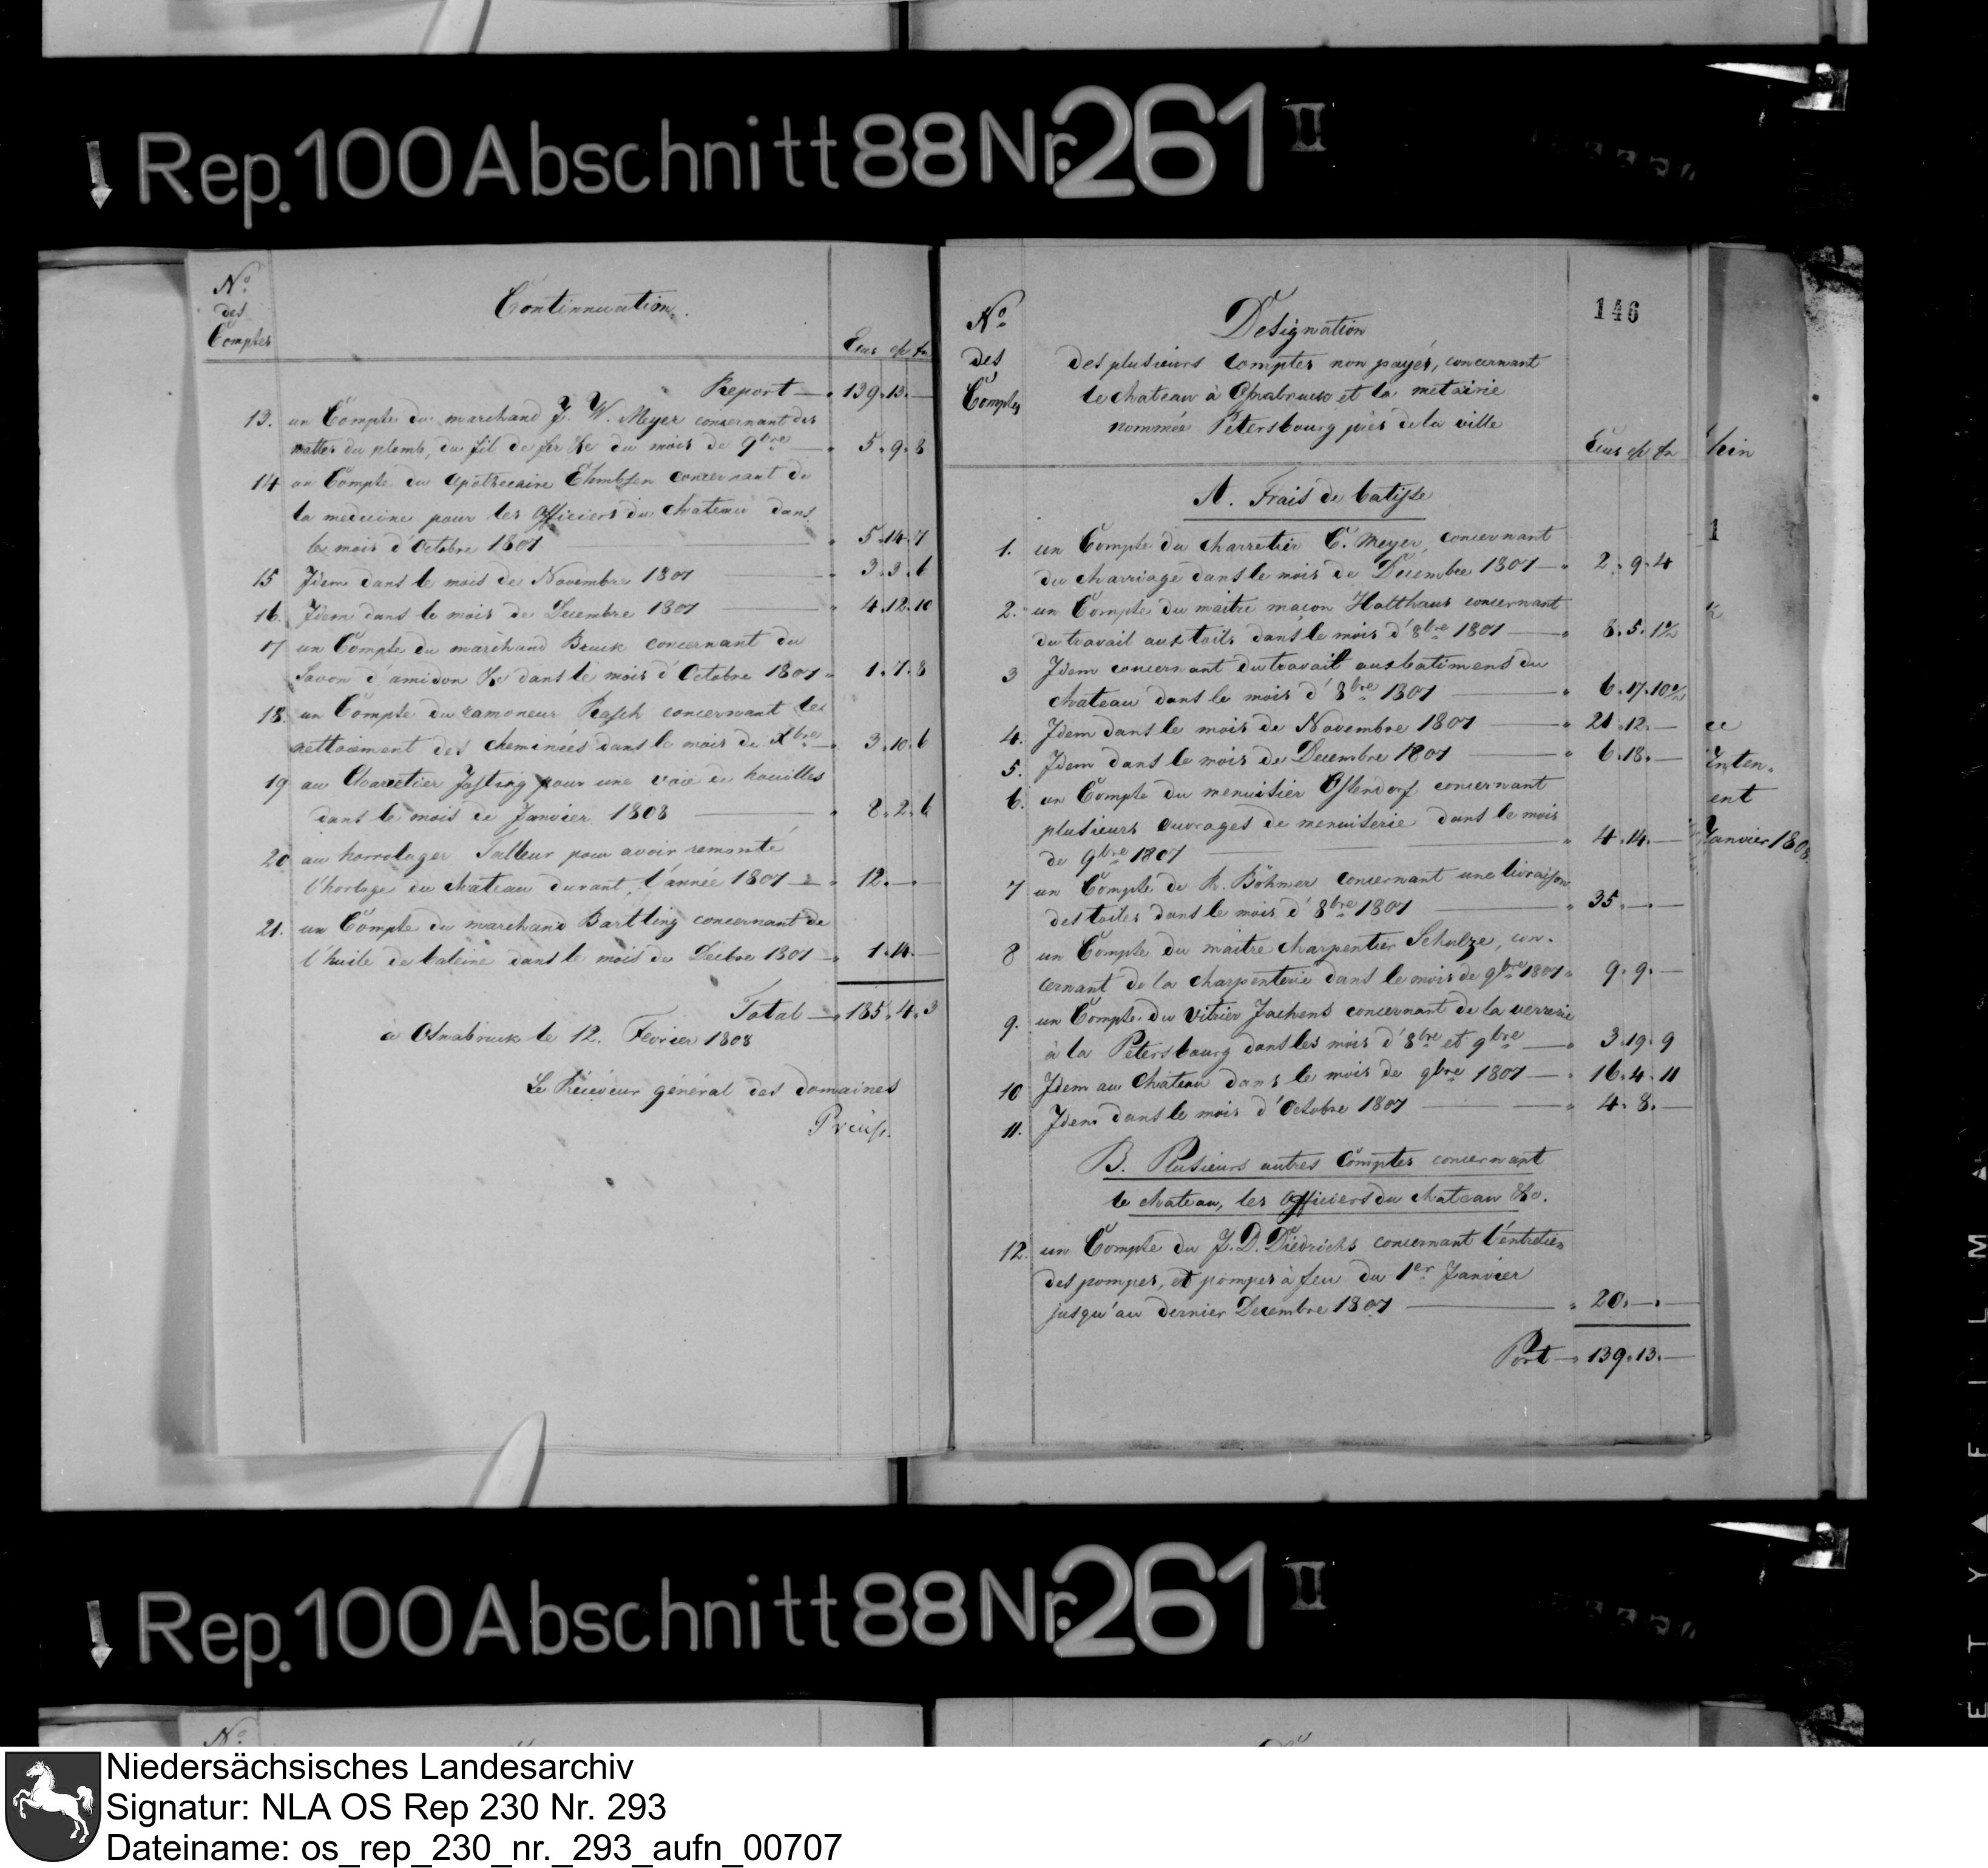 Rep. 100 Abschnitt 88 Nr. 261 II
No
des
Comptes
Continuation.
Ecus
Report — 139. 13. —
13. un Compte du marchand J. W. Meyer concernant des
nattes du plomb, du fil de fer &c du mois de 9bre — 5. 9. 8
14 un Compte du Apothecaire Ehmbsen concernant de
la medecine pour les Officiers du chateau dans
le mois d'Octobre 1807 — 5. 14. 7
15 Idem dans le mois de Novembre 1807 — 3. 3. 6
16. Idem dans le mois de Decembre 1807 — 4. 12. 10
17 un Compte du marchand Bruck concernant du
Savon d'amidon &c dans le mois d'Octobre 1807 1. 7. 8
18. un Compte du ramoneur Rasch concernant le
nettoiement des cheminées dans le mois de Xbre — 3. 10. 6
19 au Charretier Jastring pour une voie de houilles
dans le mois de Janvier 1808 — 8. 2. 6
20 au horrologer Talleur pour avoir remonté
l'horloge du chateau durant l'année 1807 — 12. — —
21. un Compte du marchand Bartling concernant de
l'huile de baleine dans le mois de Decbre 1807 — 1. 14. —
Total — 185. 4. 3
à Osnabruck le 12. Fevrier 1808
Le Receveur général des domaines
Preuss.
146
No
des
Comptes
Designation
des plusieurs comptes non payés, concernant
le chateau à Osnabruck et la metairie
nommée Petersbourg près de la ville
Ecus
A. Frais de batisse
1. un Compte du charretier C. Meyer concernant
du charriage dans le mois de Decembre 1807 — 2. 9. 4
2. un Compte du maitre maçon Holthaus concernant
du travail aux toits dans le mois d'8bre 1807 — 8. 5. 1½
3 Idem concernant du travail aux batimens du
chateau dans le mois d'8bre 1807 — 6. 17. 10½
4. Idem dans le mois de Novembre 1807 — 21. 12. —
5. Idem dans le mois de Decembre 1807 — 6. 18. —
6. un Compte du menuisier Ostendorf concernant
plusieurs ouvrages de menuiserie dans le mois
de 9bre 1807 — 4. 14. —
7 un Compte de R. Böhmer concernant une livraison
des toiles dans le mois d'8bre 1807 — 35. — —
8 un Compte du maitre charpentier Schulze, con-
cernant de la charpenterie dans le mois de 9bre 1807 9. 9. —
9. un Compte du vitrier Jachens concernant de la verrerie
à la Petersbourg dans les mois d'8bre et 9bre — 3. 19. 9
10 Idem au Chateau dans le mois de 9bre 1807 — 16. 4. 11
11. Idem dans le mois d'Octobre 1807 — 4. 8. —
B. Plusieurs autres Comptes concernant
le chateau, les Officiers du chateau &c.
12. un Compte du J. D. Diedrichs concernant l'entretien
des pompes, et pompes à feu du 1er Janvier
jusqu'au dernier Decembre 1807 — 20. — —
Port — 139. 13. —
hin
1
ce
Inten-
ent
Janvier 1808
Rep. 100 Abschnitt 88 Nr. 261 II
No
Niedersächsisches Landesarchiv
Signatur: NLA OS Rep 230 Nr. 293
Dateiname: os_rep_230_nr._293_aufn_00707